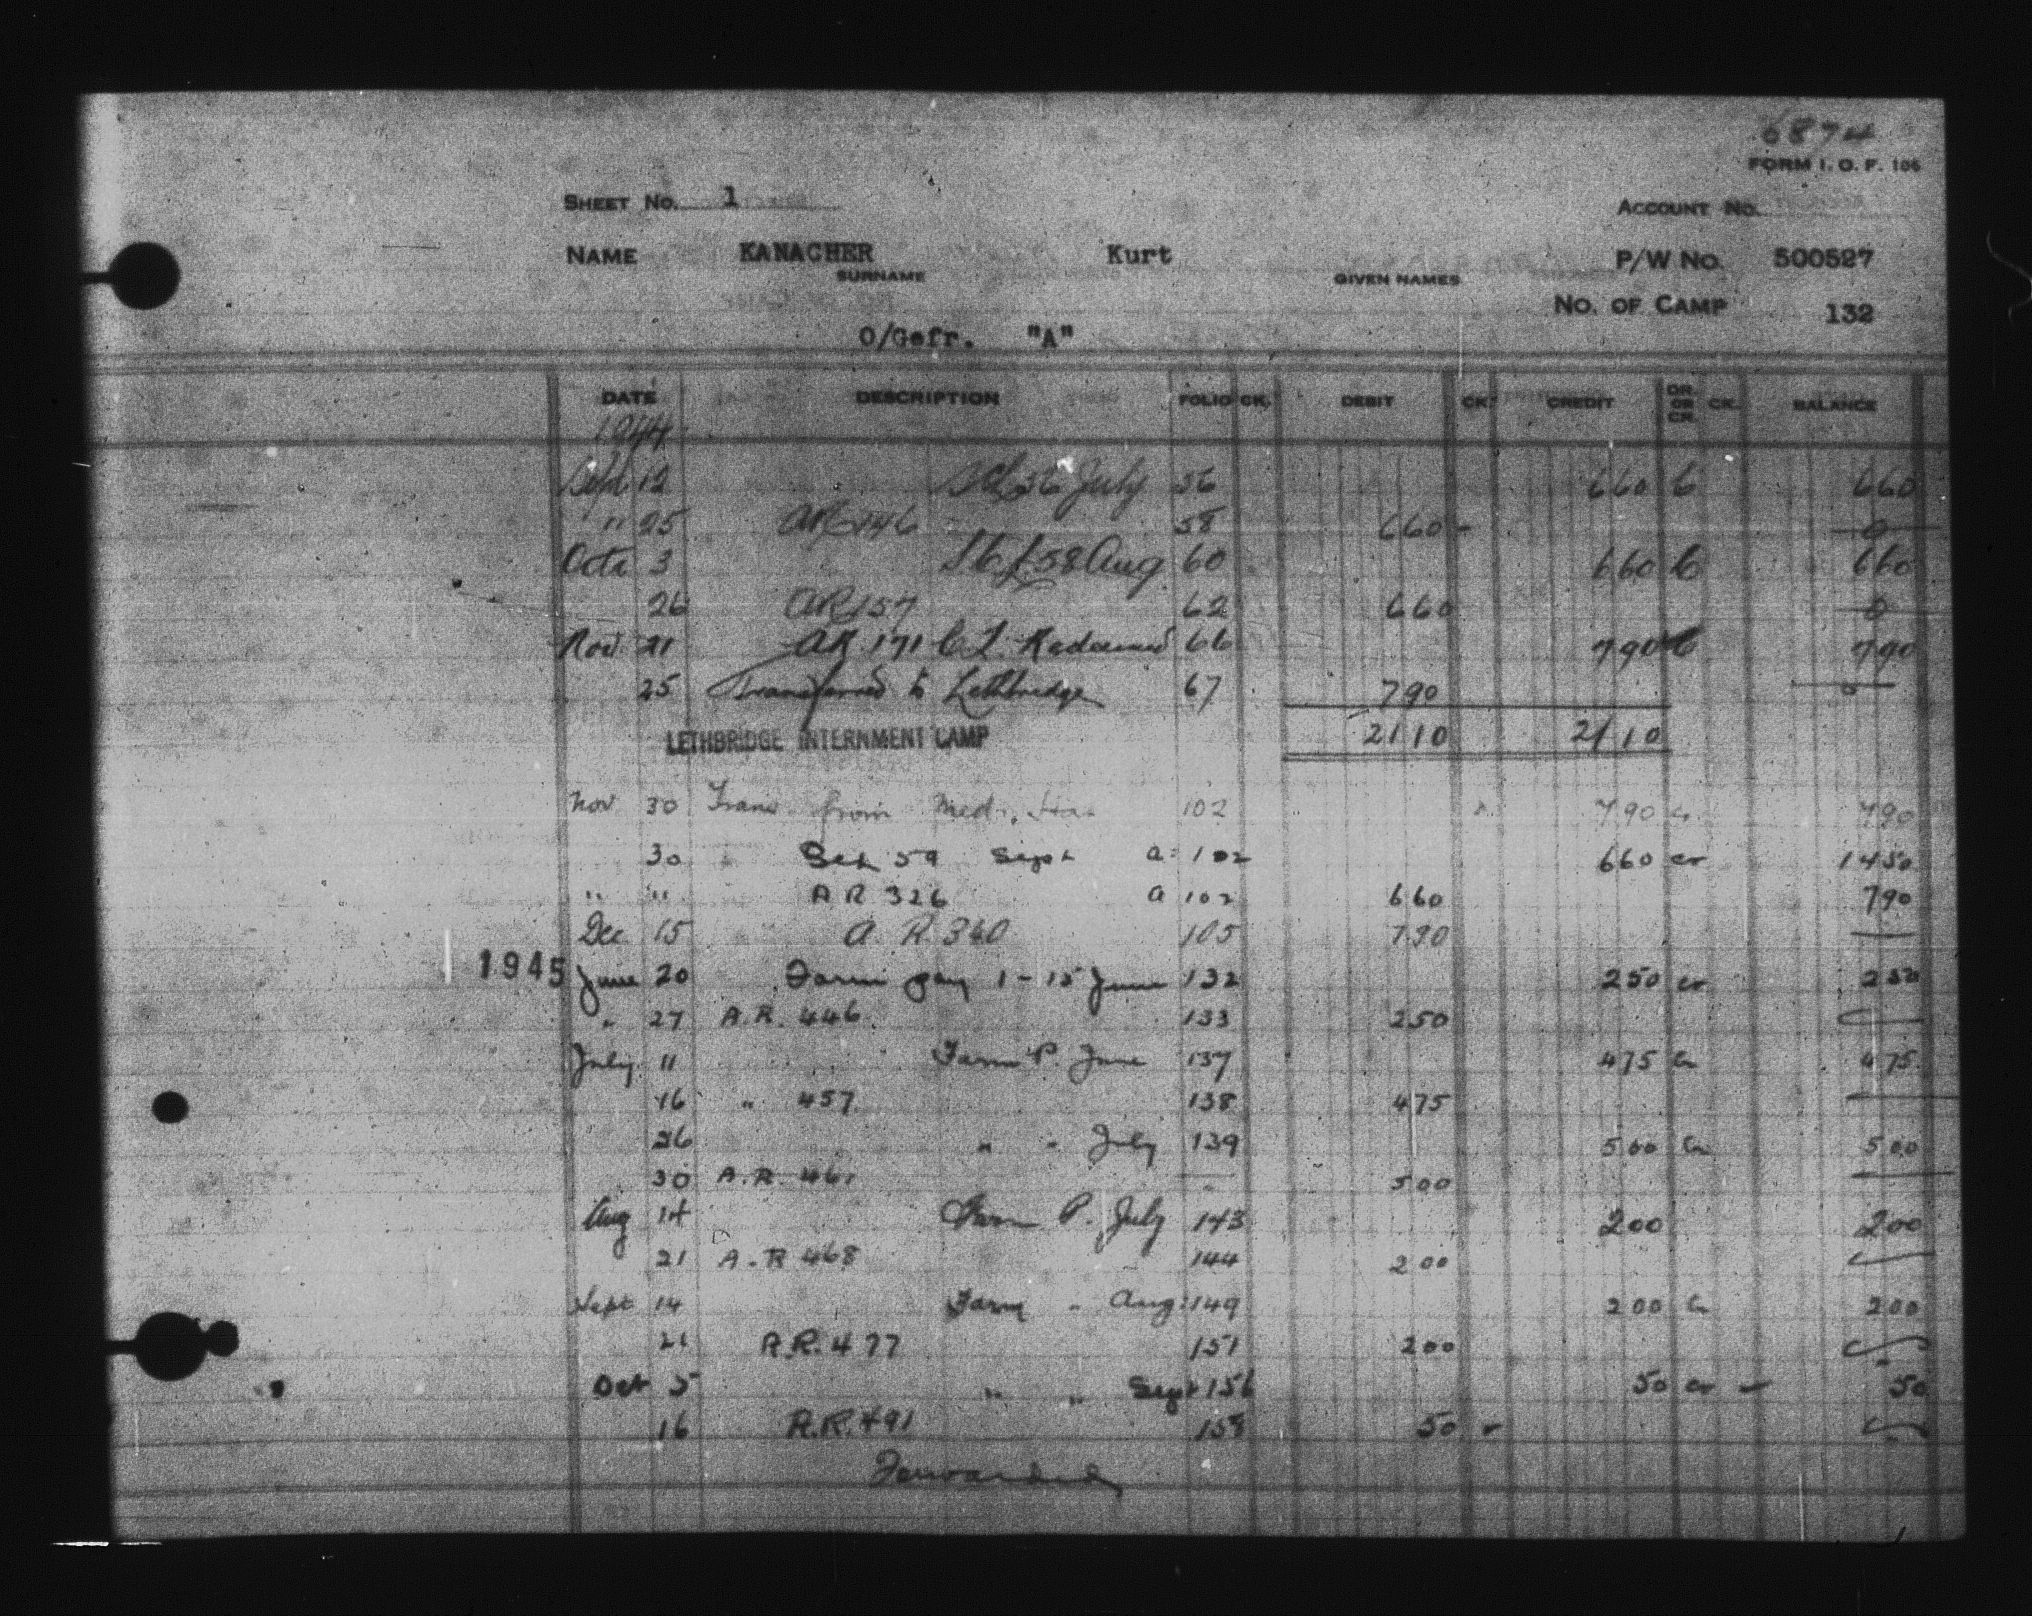 6874
FORM I. O. F. 106
SHEET No. 1 ACCOUNT No.
NAME KANACHER Kurt P/W No. 500527
SURNAME GIVEN NAMES
No. OF CAMP 132
O/Gefr. "A"
DATE DESCRIPTION FOLIO CK. DEBIT CK. CREDIT DR. OR CR. CK. BALANCE
1944
Sept 12 36 July 56 660 C 660
" 25 AR 146 58 660 - 0
Oct 3 58 Aug 60 660 C 660
26 AR 157 62 660 0
Nov 21 AR 171 C.L. Redeemed 66 790 C 790
25 Transferred to Lethbridge 67 790 0
2110 2110
LETHBRIDGE INTERNMENT CAMP
Nov 30 Trans from Med. Hat 102 790 Cr 790
30 59 Sept a 102 660 cr 1450
" " A R 326 a 102 660 790
Dec 15 A. R. 360 105 790 —
1945 June 20 Farm pay 1-15 June 132 250 cr 250
" 27 A.R. 446 133 250 —
July 11 Farm P. June 137 475 Cr 475
16 " 457 138 475 —
26 " " July 139 500 Cr 500
30 A.R. 461 — 500 —
Aug 14 Farm P. July 143 200 200
21 A.R 468 144 200 —
Sept 14 Farm " Aug: 149 200 Cr 200
21 A.R. 477 151 200
Oct 5 " " Sept 156 50 cr 50
16 A.R. 491 158 50
Forwarded